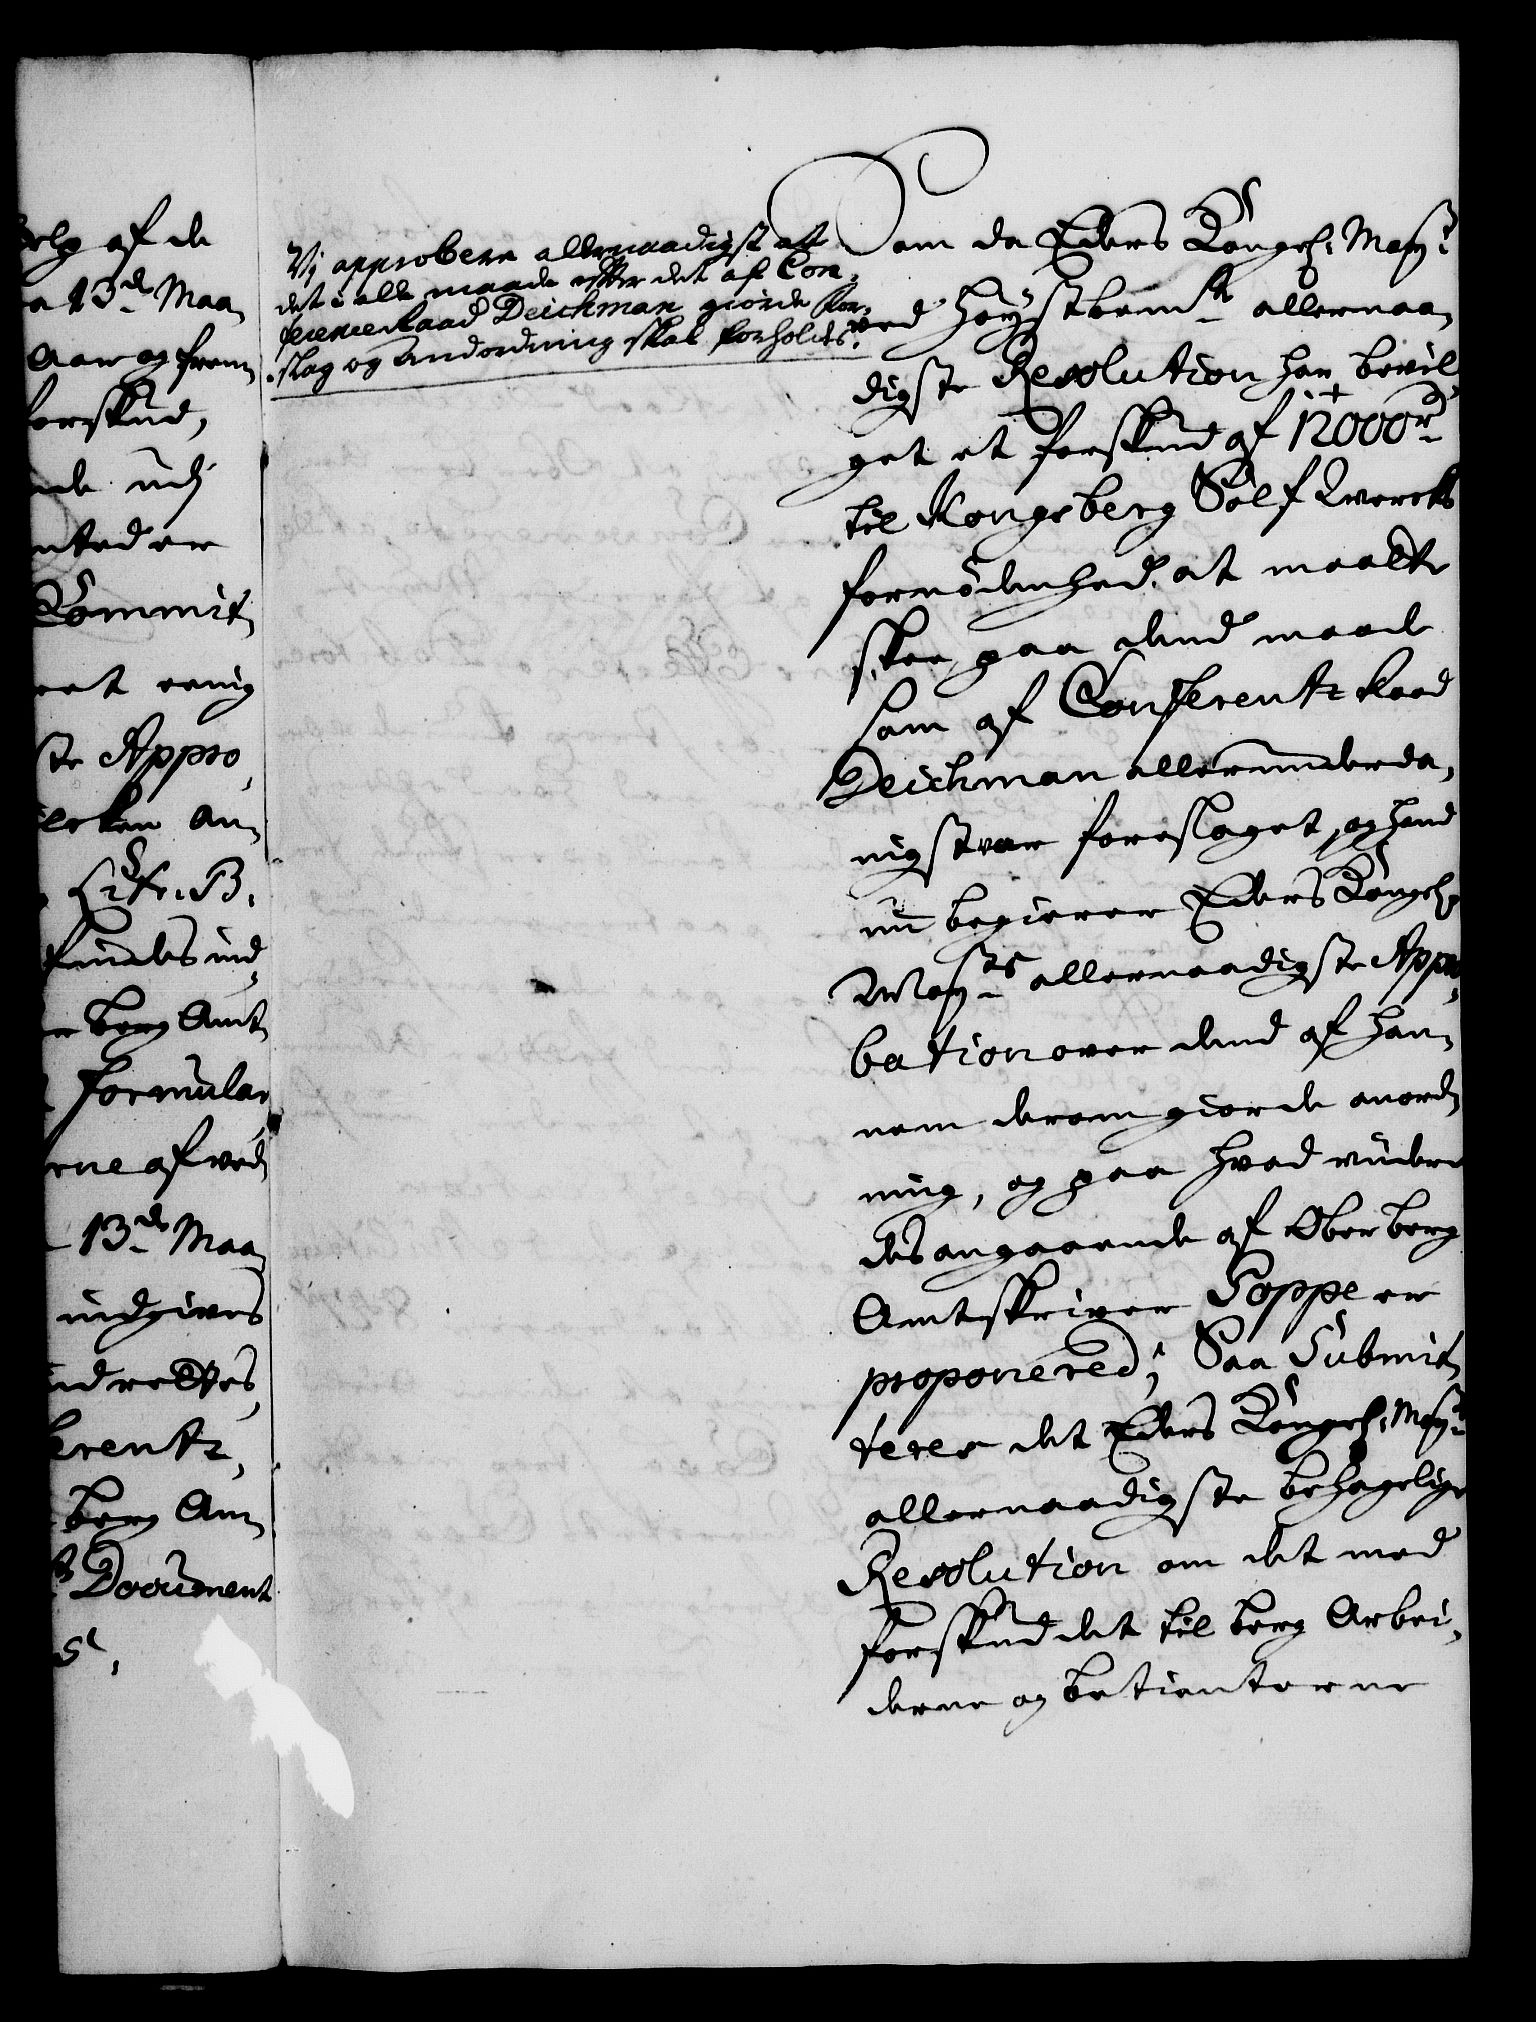 af de
13de Maa
Aar og frem
forskud,
udj
Committ
eenig
ste Appro
ilcken An
Litr. B.
findes ind
berg Ambt
formular
rne af ved
13de Maa
indgives
indrettes,
berg Am
Document
Vj approbere allernaadigst at
det i alle maade effter det af Con-
ferenceRaad Deichman giorde For-
slag og Andordning skal forholdes.
Som da Eders Kongel: Mayt
ved høystbemte allernaa-
digste Resolution har bevil
get et forskud af 12000 rd
til Kongsberg Sølf Wercks
fornødenhed, at maatte
skee paa dend maade
som af Conferentz Raad
Deichman allerunderda-
nigst var foreslaget, og hand
nu begierer Eders Kongel:
Mayts allernaadigste Appro-
bation over dend af han-
nem derom giorde anord-
ning, og paa hvad videre
des angaaende af Ober Berg
Amtskriver Poppe er
proponered; Saa Submit-
teres det Eders Kongel: Mayts
allernaadigste behagelige
Resolution om det med
forskud det til berg Arbei-
derne og betienterne